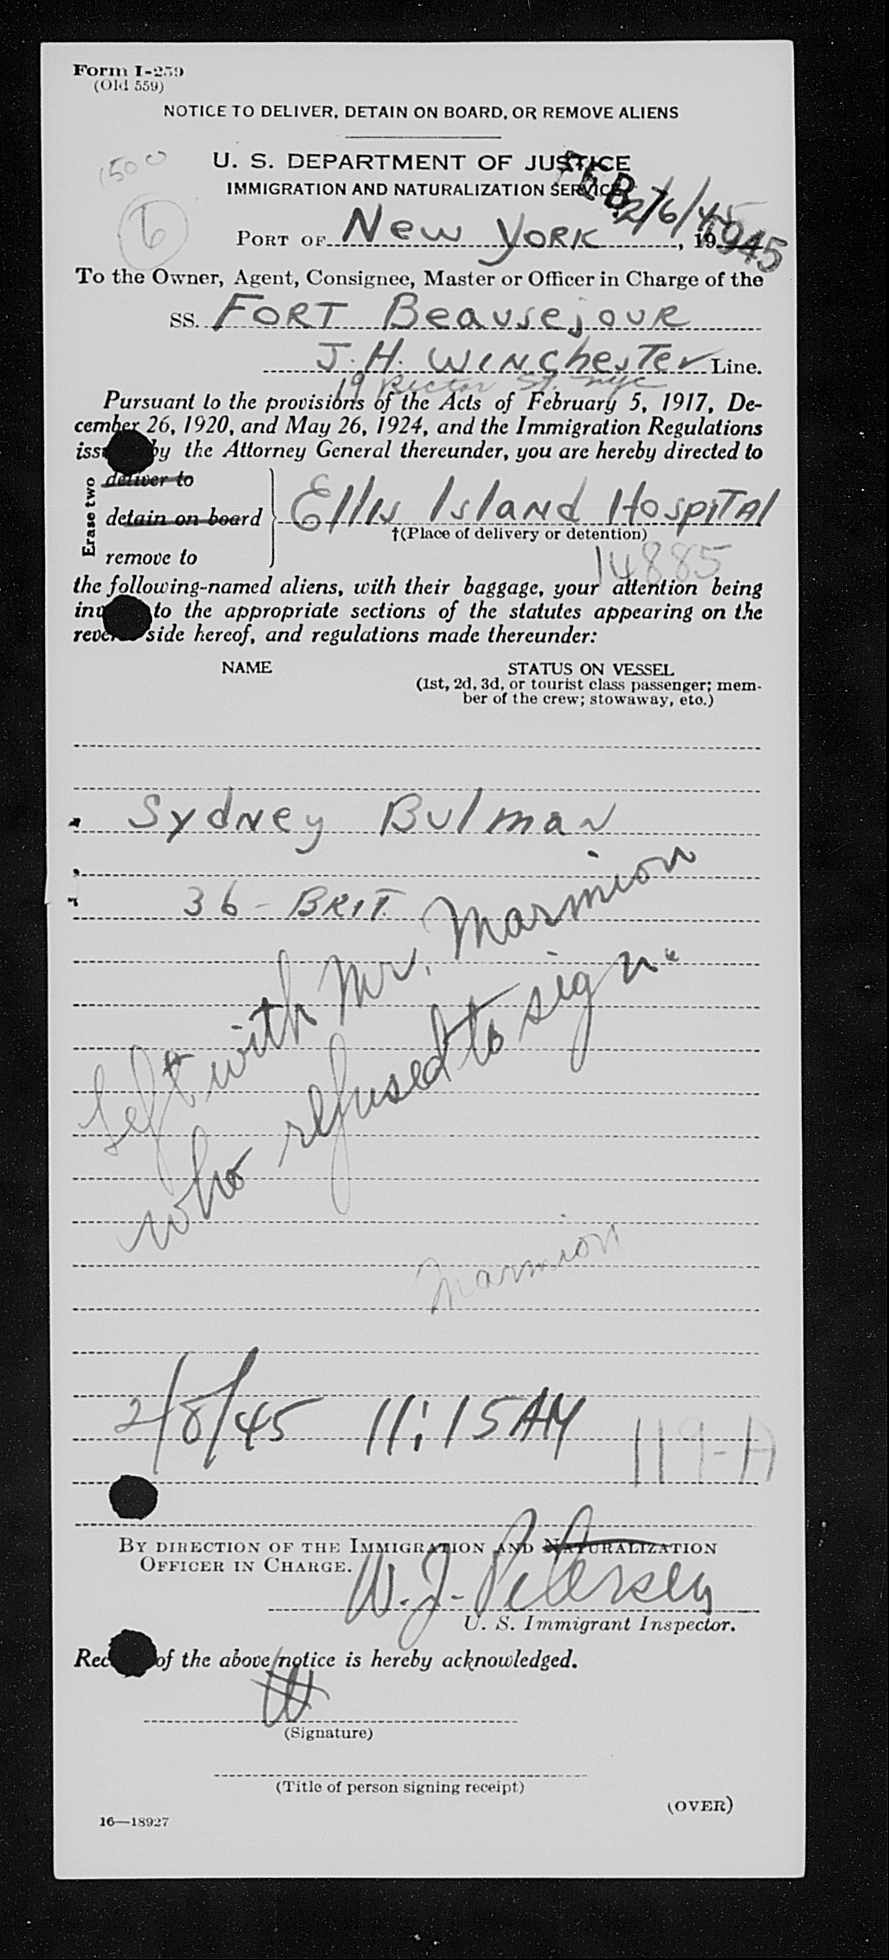 Form I-259
(Old 559)
NOTICE TO DELIVER, DETAIN ON BOARD, OR REMOVE ALIENS
1500
U. S. DEPARTMENT OF JUSTICE
IMMIGRATION AND NATURALIZATION SERVICE
FEB 1945
2/6/45
6
PORT OF New York, 19
To the Owner, Agent, Consignee, Master or Officer in Charge of the
SS. FORT Beausejour
J. H. Winchester Line.
19 Rector St. nyc
Pursuant to the provisions of the Acts of February 5, 1917, De-
cember 26, 1920, and May 26, 1924, and the Immigration Regulations
by the Attorney General thereunder, you are hereby directed to
Erase two
deliver to
detain on board
Ellis Island Hospital
†(Place of delivery or detention)
remove to
14885
the following-named aliens, with their baggage, your attention being
to the appropriate sections of the statutes appearing on the
side hereof, and regulations made thereunder:
NAME STATUS ON VESSEL
(1st, 2d, 3d, or tourist class passenger; mem-
ber of the crew; stowaway, etc.)
Sydney Bulman
36 - BRIT.
Left with Mr. Marmion
who refused to sign.
Marmion
2/8/45 11:15 AM
119-A
BY DIRECTION OF THE IMMIGRATION AND NATURALIZATION
OFFICER IN CHARGE.
W. J. Petersen
U. S. Immigrant Inspector.
of the above notice is hereby acknowledged.
(Signature)
(Title of person signing receipt)
(OVER)
16—18927